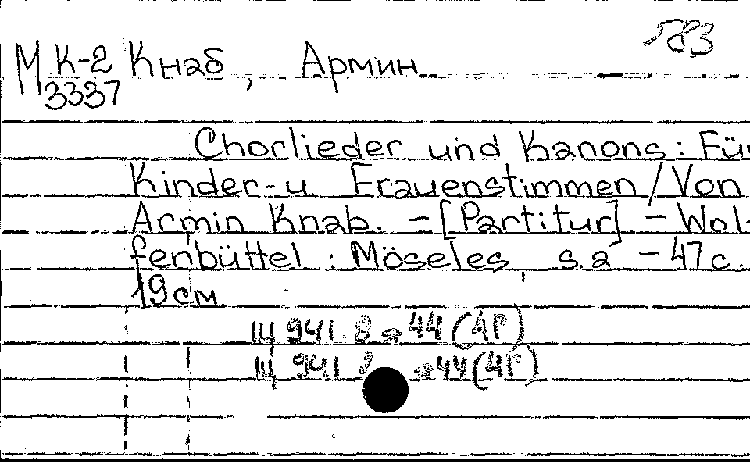 583
М К-2 Кнаб, Армин
3337
Chorlieder und Kanons: Fü
Kinder-u Frauenstimmen / Von
Armin Knab. - [Partitur] - Wol-
fenbüttel: Möseles, s.a - 47 с.
19 см
Щ 941.8 я 44 (4Г)
Щ 941.8 я 44 (4Г)